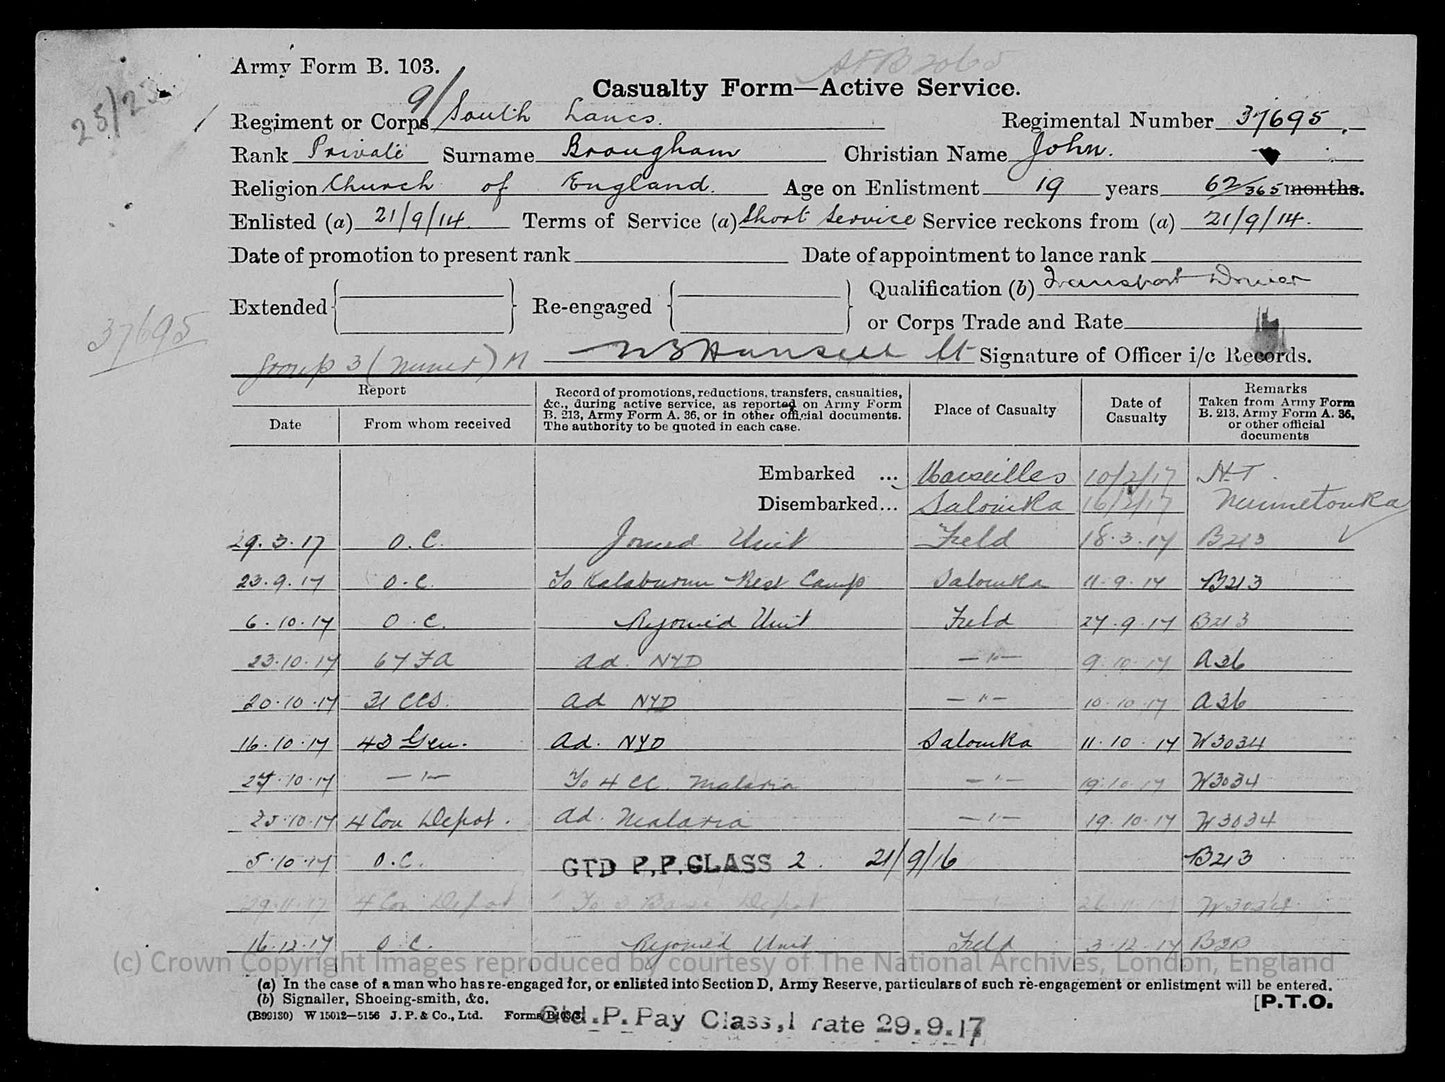 Army Form B. 103.
AFB 2065
25/23
Casualty Form—Active Service.
Regiment or Corps 9/ South Lancs. Regimental Number 37695.
Rank Private Surname Brougham Christian Name John.
Religion Church of England. Age on Enlistment 19 years 62/365 months.
Enlisted (a) 21/9/14. Terms of Service (a) Short Service Service reckons from (a) 21/9/14.
Date of promotion to present rank Date of appointment to lance rank
Extended { } Re-engaged { } Qualification (b) Transport Driver
or Corps Trade and Rate
37695
Group 3 (Miner) M Lt Signature of Officer i/c Records.
Report
Date From whom received
Record of promotions, reductions, transfers, casualties, &c., during active service, as reported on Army Form B. 213, Army Form A. 36, or in other official documents. The authority to be quoted in each case.
Place of Casualty
Date of Casualty
Remarks
Taken from Army Form B. 213, Army Form A. 36, or other official documents
Embarked ... Marseilles 10/2/17 H.T.
Disembarked... Salonika 16/2/17 Minnetonka
29.3.17 O.C. Joined Unit Field 18.3.17 B213
23.9.17 O.C. To Kalaburnu Rest Camp Salonika 11.9.17 B213
6.10.17 O.C. Rejoined Unit Field 27.9.17 B213
23.10.17 67 FA ad. NYD —"— 9.10.17 A36
20.10.17 31 CCS. ad NYD —"— 10.10.17 A36
16.10.17 43 Gen. ad. NYD Salonika 11.10.17 W3034
27.10.17 —"— To 4 CC. Malaria —"— 19.10.17 W3034
25.10.17 4 Con Depot. ad. Malaria —"— 19.10.17 W3034
5.10.17 O.C. GTD P.P.CLASS 2. 21/9/16 B213
29.11.17 4 Con Depot To 3 Base Depot —"— 26.11.17 W3034
16.12.17 O.C. Rejoined Unit Field 3.12.17 B213
(c) Crown Copyright Images reproduced by courtesy of The National Archives, London, England
(a) In the case of a man who has re-engaged for, or enlisted into Section D, Army Reserve, particulars of such re-engagement or enlistment will be entered.
(b) Signaller, Shoeing-smith, &c.
[P.T.O.
(B99180) W 15012—5156 J. P. & Co., Ltd.
Gtd. P. Pay Class, 1 rate 29.9.17